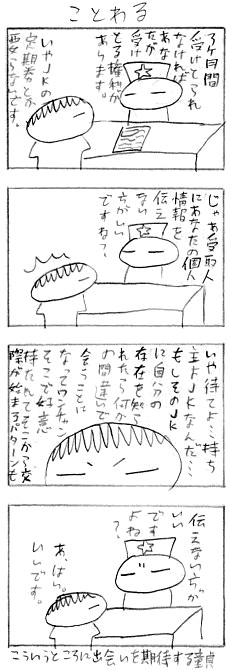 ことわる
3ヶ月間
受けとられ
なければ
あな
たが
受け
とる権利が
あります。
いやJKの
定期券とか
要らないです。
じゃあ受取人
にあなたの個人
情報を
伝え
ない
方がいい
ですね?
いや待てよ…持ち
主はJKなんだ…
もしそのJK
に自分の
存在を知ら
れたら何か
の間違いで
会うことに
なってワンチャン
そこで好意
持たれてそこから交
際が始まるパターンも
伝えない方が
いい
です
よね?
あ、はい。
いいです。
こういうところに出会いを期待する童貞